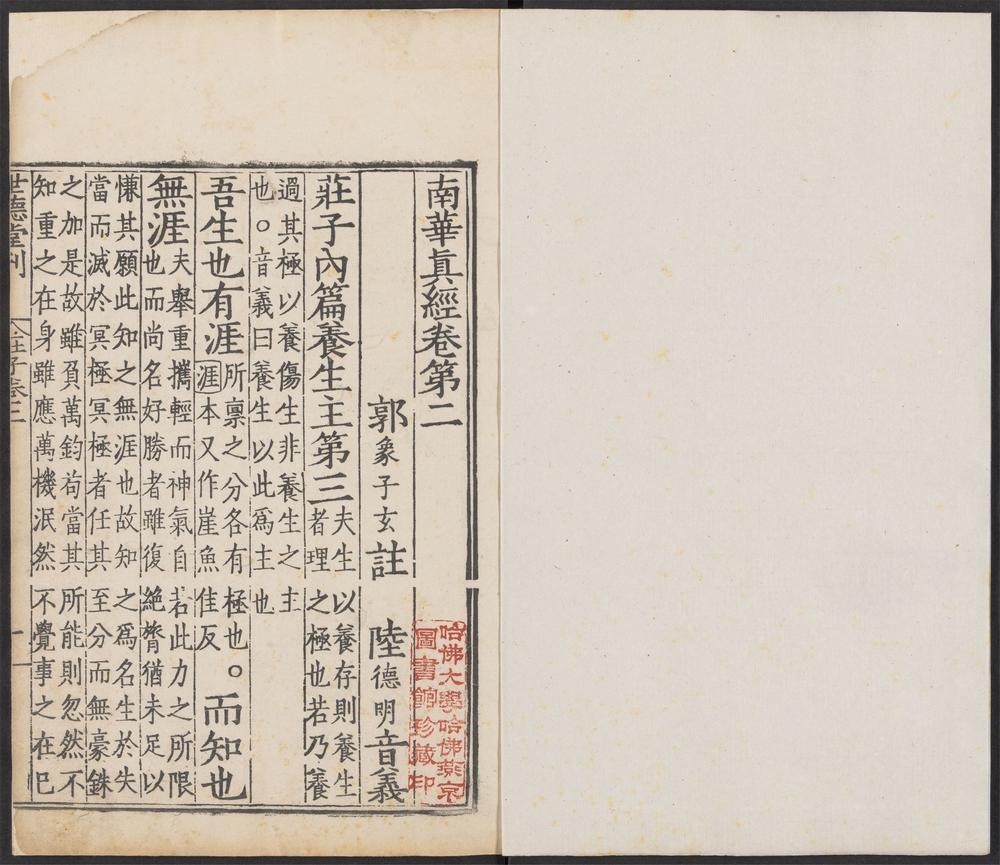 南華眞經卷第二
哈佛大學哈佛燕京
圖書館珍藏印
郭象子玄註 陸德明音義
莊子內篇養生主第三夫生以養存則養生
者理之極也若乃養
過其極以養傷生非養生之主
也○音義曰養生以此爲主也
吾生也有涯所稟之分各有極也○
涯本又作崖魚佳反而知也
無涯夫舉重攜輕而神氣自若此力之所限
也而尚名好勝者雖復絶膂猶未足以
慊其願此知之無涯也故知之爲名生於失
當而滅於冥極冥極者任其至分而無豪銖
之加是故雖負萬鈞苟當其所能則忽然不
知重之在身雖應萬機泯然不覺事之在已
世德堂刊